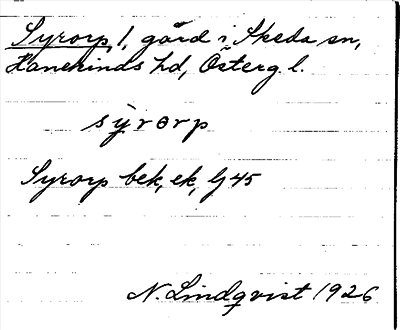 Syrorp, 1, gård i Skeda sn,
Hanekinds hd, Österg. l.
sỳrɵrp
Syrorp bek, ek, G 45
N. Lindqvist 1926